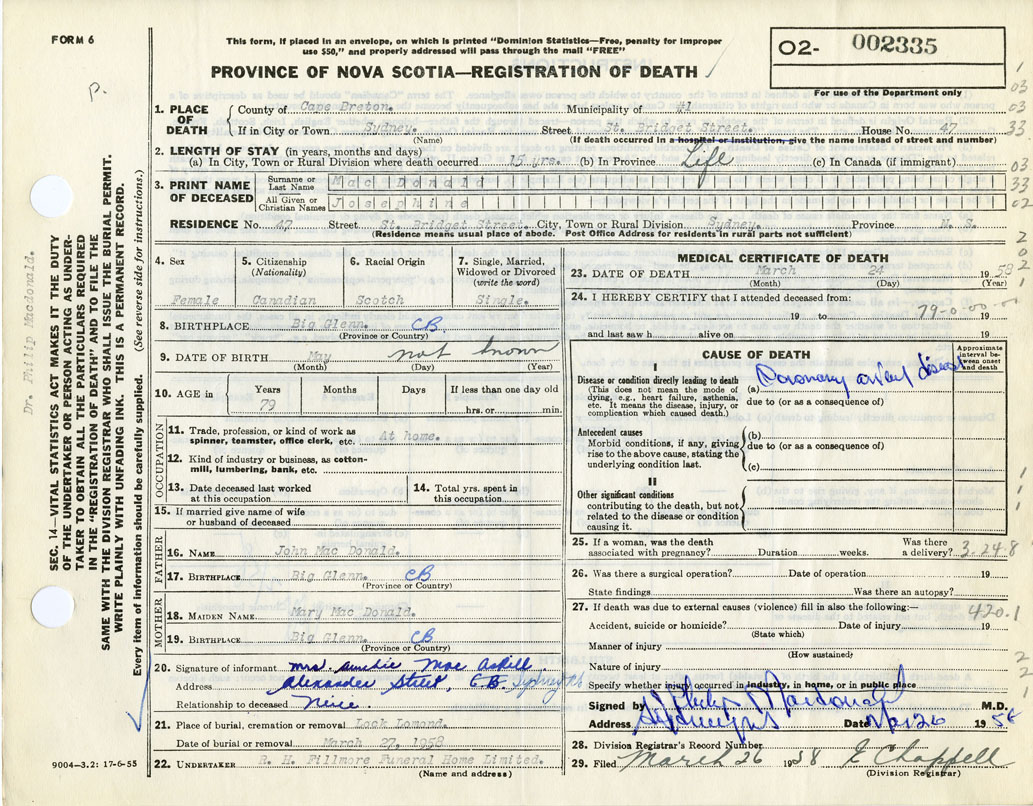 FORM 6
This form, if placed in an envelope, on which is printed "Dominion Statistics—Free, penalty for improper
use $50," and properly addressed will pass through the mail "FREE"
PROVINCE OF NOVA SCOTIA—REGISTRATION OF DEATH
02- 002335
For use of the Department only
P.
1. PLACE OF DEATH
County of Cape Breton. Municipality of #1
If in City or Town Sydney. Street St. Bridget Street. House No. 47
(Name) (If death occurred in a hospital or institution, give the name instead of street and number)
2. LENGTH OF STAY (in years, months and days)
(a) In City, Town or Rural Division where death occurred 15 yrs. (b) In Province Life (c) In Canada (if immigrant)
3. PRINT NAME OF DECEASED
Surname or Last Name Mac Donald
All Given or Christian Names Josephine
RESIDENCE No. 47 Street St. Bridget Street. City, Town or Rural Division Sydney. Province N. S.
(Residence means usual place of abode. Post Office Address for residents in rural parts not sufficient)
4. Sex
Female
5. Citizenship
(Nationality)
Canadian
6. Racial Origin
Scotch
7. Single, Married,
Widowed or Divorced
(write the word)
Single.
8. BIRTHPLACE Big Glenn. CB
(Province or Country)
9. DATE OF BIRTH May not known
(Month) (Day) (Year)
10. AGE in
Years Months Days If less than one day old
79 hrs. or min.
OCCUPATION
11. Trade, profession, or kind of work as
spinner, teamster, office clerk, etc. At home.
12. Kind of industry or business, as cotton-
mill, lumbering, bank, etc.
13. Date deceased last worked
at this occupation
14. Total yrs. spent in
this occupation
15. If married give name of wife
or husband of deceased
FATHER
16. NAME John Mac Donald.
17. BIRTHPLACE Big Glenn. CB
(Province or Country)
MOTHER
18. MAIDEN NAME Mary Mac Donald.
19. BIRTHPLACE Big Glenn. CB
(Province or Country)
20. Signature of informant Mrs Mac Askill
Address Alexander Street, C B. Sydney NS
Relationship to deceased Niece.
21. Place of burial, cremation or removal Loch Lomond.
Date of burial or removal March 27, 1958
22. UNDERTAKER R. H. Fillmore Funeral Home Limited.
(Name and address)
9004-3.2: 17-6-55
MEDICAL CERTIFICATE OF DEATH
23. DATE OF DEATH March 24 1958
(Month) (Day) (Year)
24. I HEREBY CERTIFY that I attended deceased from:
19 to 19
79-0-00-00
and last saw h alive on 19
CAUSE OF DEATH
Approximate interval between onset and death
I
Disease or condition directly leading to death
(This does not mean the mode of
dying, e.g., heart failure, asthenia,
etc. It means the disease, injury, or
complication which caused death.)
(a) Coronary artery disease
due to (or as a consequence of)
Antecedent causes
Morbid conditions, if any, giving
rise to the above cause, stating the
underlying condition last.
(b)
due to (or as a consequence of)
(c)
II
Other significant conditions
contributing to the death, but not
related to the disease or condition
causing it.
25. If a woman, was the death
associated with pregnancy? Duration weeks. Was there
a delivery?
3-24-8
26. Was there a surgical operation? Date of operation 19
State findings Was there an autopsy?
27. If death was due to external causes (violence) fill in also the following:—
420.1
Accident, suicide or homicide? Date of injury 19
(State which)
Manner of injury
(How sustained)
Nature of injury
Specify whether injury occurred in industry, in home, or in public place
Signed by Philip Macdonald M.D.
Address Sydney NS Date Mar 26 1958
28. Division Registrar's Record Number
29. Filed March 26 1958 E Chappell
(Division Registrar)
Dr. Philip Macdonald.
SEC. 14—VITAL STATISTICS ACT MAKES IT THE DUTY
OF THE UNDERTAKER OR PERSON ACTING AS UNDER-
TAKER TO OBTAIN ALL THE PARTICULARS REQUIRED
IN THE "REGISTRATION OF DEATH" AND TO FILE THE
SAME WITH THE DIVISION REGISTRAR WHO SHALL ISSUE THE BURIAL PERMIT.
WRITE PLAINLY WITH UNFADING INK. THIS IS A PERMANENT RECORD.
Every item of information should be carefully supplied. (See reverse side for instructions.)
1
03
03
33
03
33
02
2
0
2
1
1
1
1
2
2